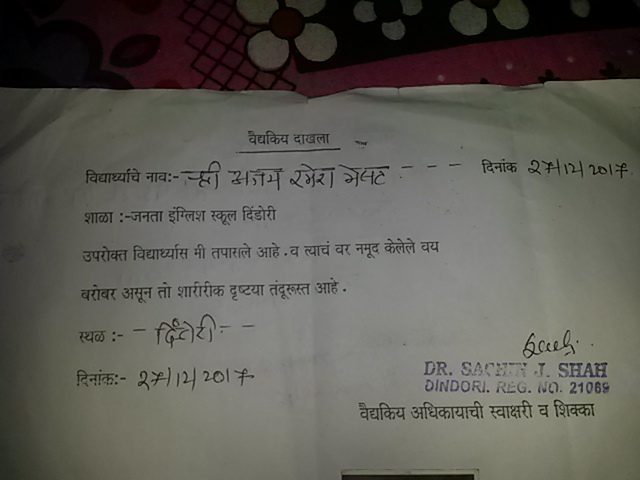 वैद्यकिय दाखला
विद्यार्थ्याचे नाव:- श्री अजय रमेश - - - दिनांक 27/12/2017.
शाळा :-जनता इंग्लिश स्कूल दिंडोरी
उपरोक्त विद्यार्थ्यास मी तपासले आहे.व त्याचं वर नमूद केलेले वय
बरोबर असून तो शारीरीक दृष्टया तंदूरूस्त आहे.
स्थळ :- - दिंडोरी - -
दिनांक:- 27/12/2017
DR. SACHIN J. SHAH
DINDORI. REG. NO. 21069
वैद्यकिय अधिकायाची स्वाक्षरी व शिक्का